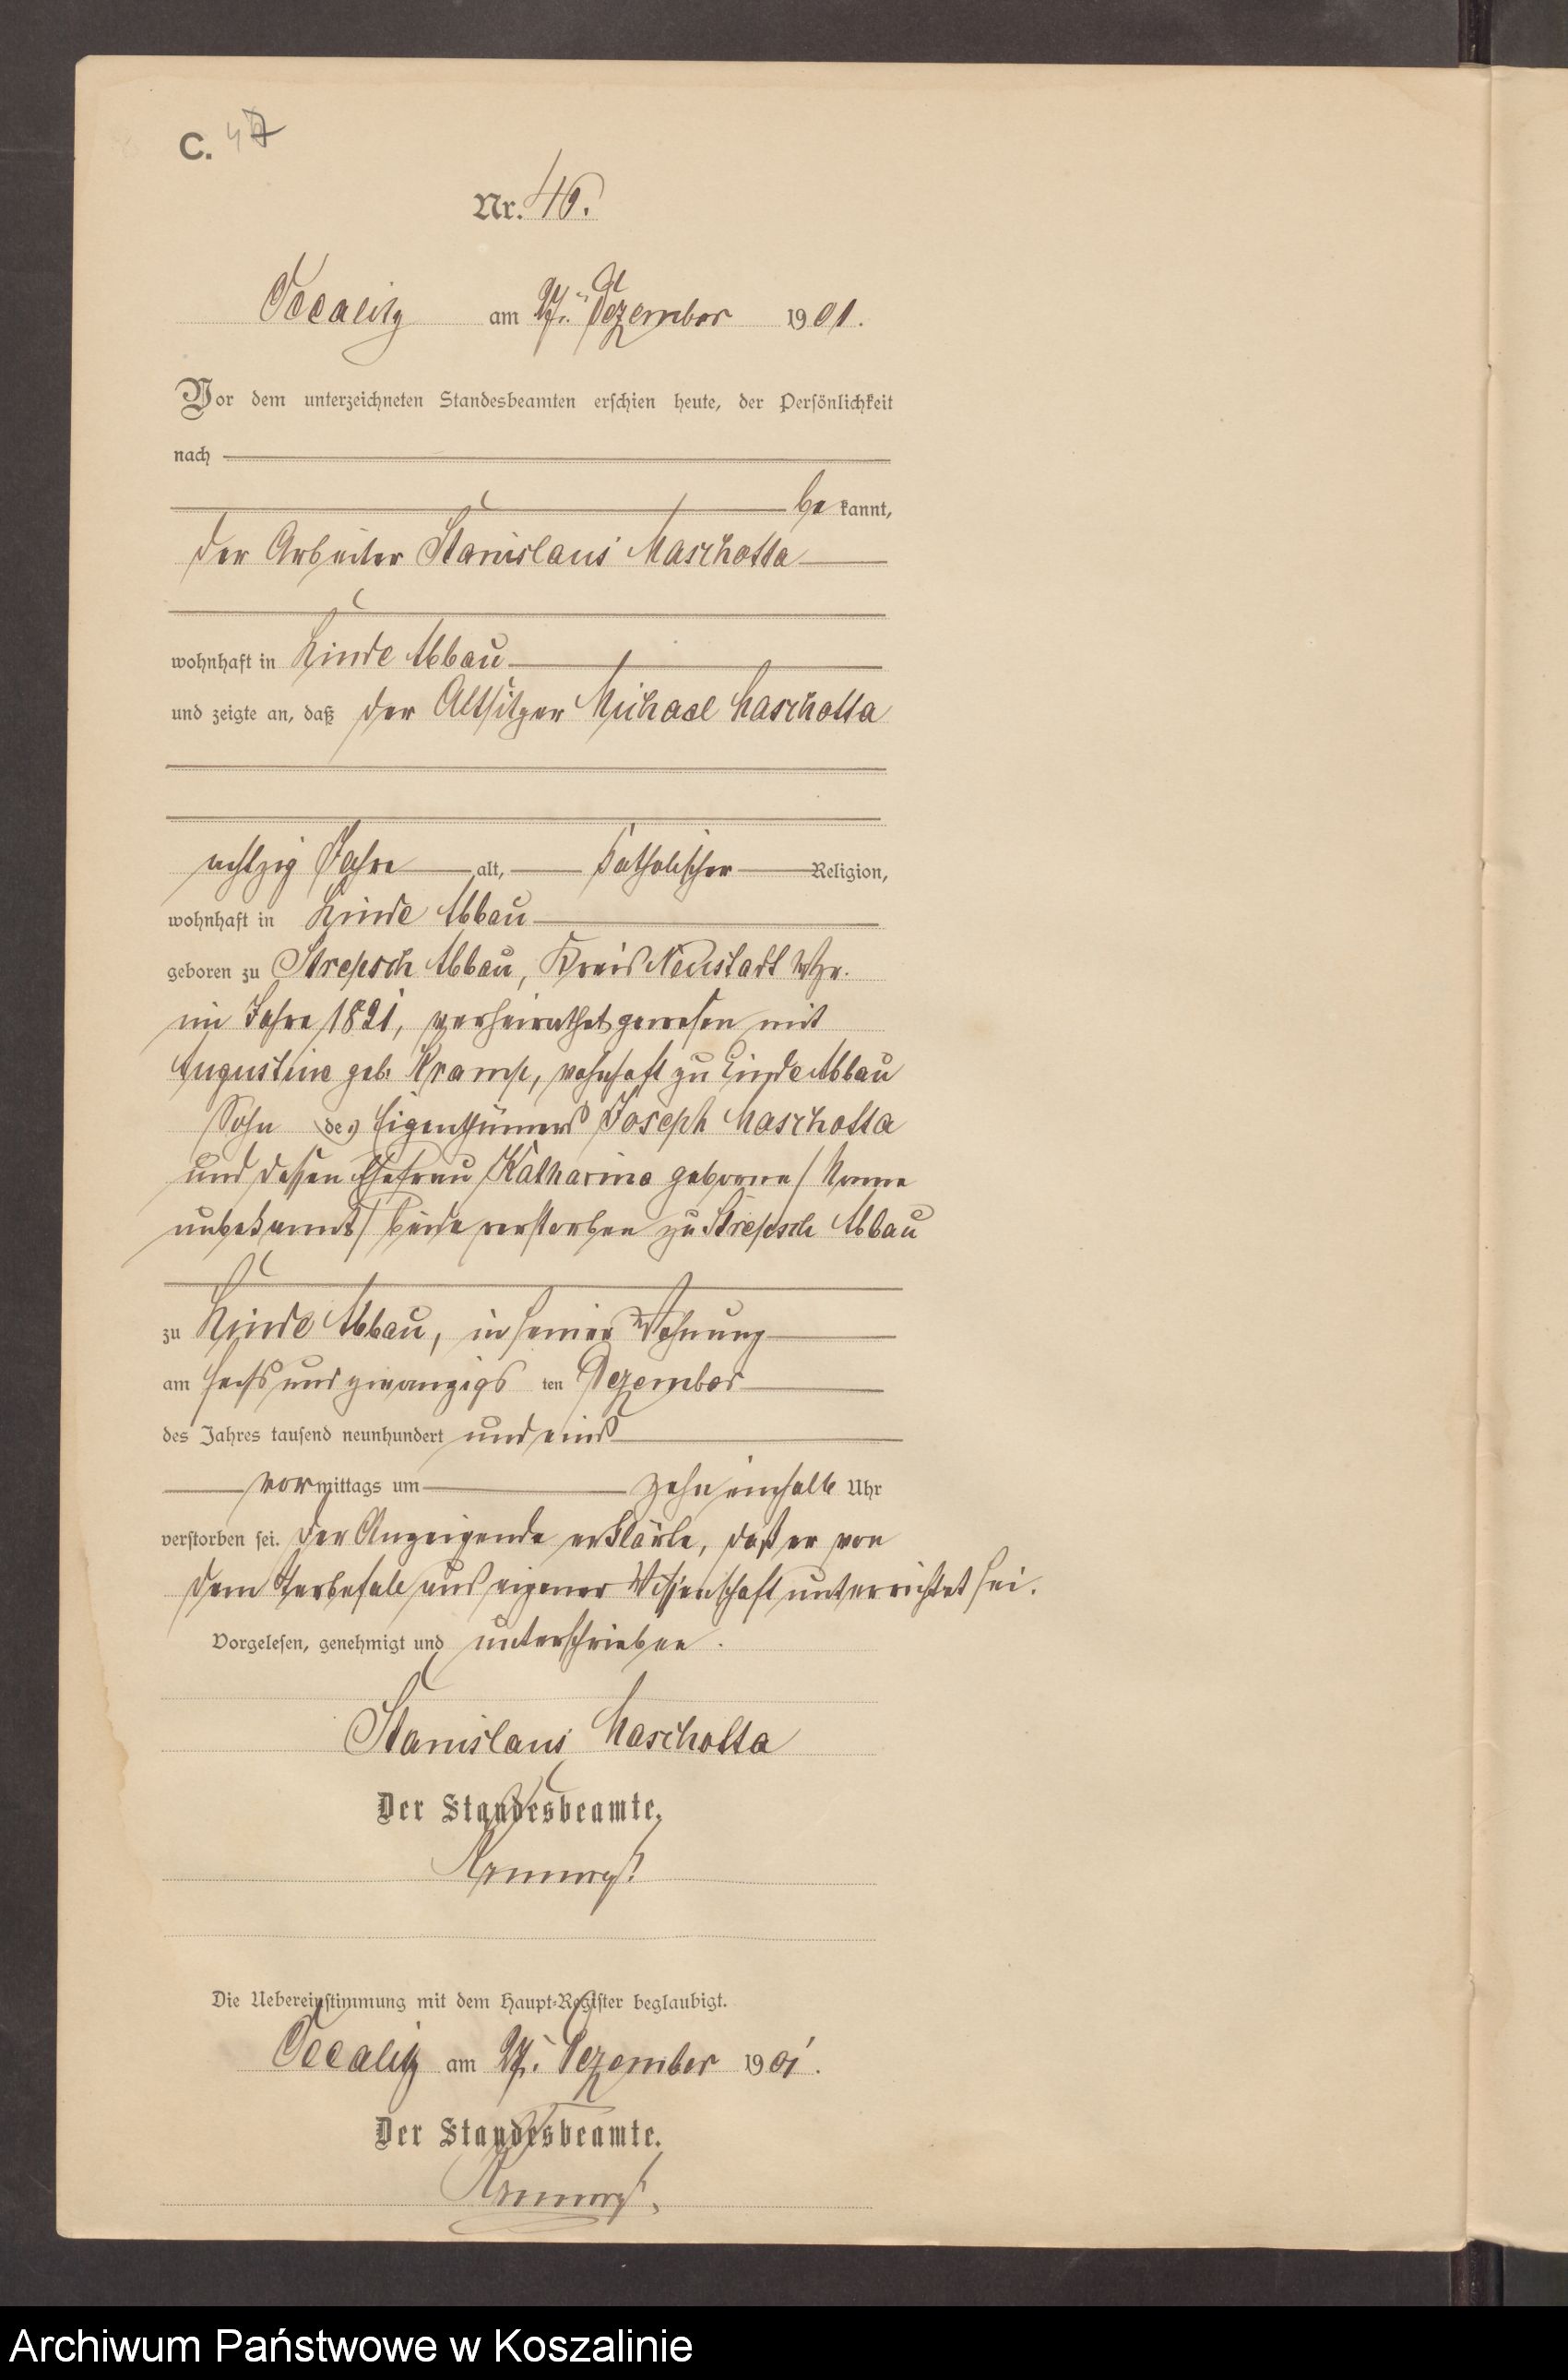 C. 47
Nr. 46.
Occalitz am 27. Dezember 1901.
Vor dem unterzeichneten Standesbeamten erschien heute, der Persönlichkeit
nach
bekannt,
der Arbeiter Stanislaus Maschotta
wohnhaft in Linde Abbau
und zeigte an, daß der Altsitzer Michael Maschotta
achtzig Jahre alt, katholischer Religion,
wohnhaft in Linde Abbau
geboren zu Strepsch Abbau, Kreis Neustadt Wpr.
im Jahre 1821, verheirathet gewesen mit
Augustine geb. Kramp, wohnhaft zu Linde Abbau
Sohn des Eigenthümers Joseph Maschotta
und dessen Ehefrau Katharina geborene / Name
unbekannt / beide verstorben zu Strepsch Abbau
zu Linde Abbau, in seiner Wohnung
am sechs und zwanzigsten Dezember
des Jahres tausend neunhundert und eins
vormittags um zehn einhalb Uhr
verstorben sei. Der Anzeigende erklärte, daß er von
dem Sterbefale aus eigener Wissenschaft unterrichtet sei.
Vorgelesen, genehmigt und unterschrieben.
Stanislaus Maschotta
Der Standesbeamte.
Die Uebereinstimmung mit dem Haupt-Register beglaubigt.
Occalitz am 27. Dezember 1901.
Der Standesbeamte.
Archiwum Państwowe w Koszalinie